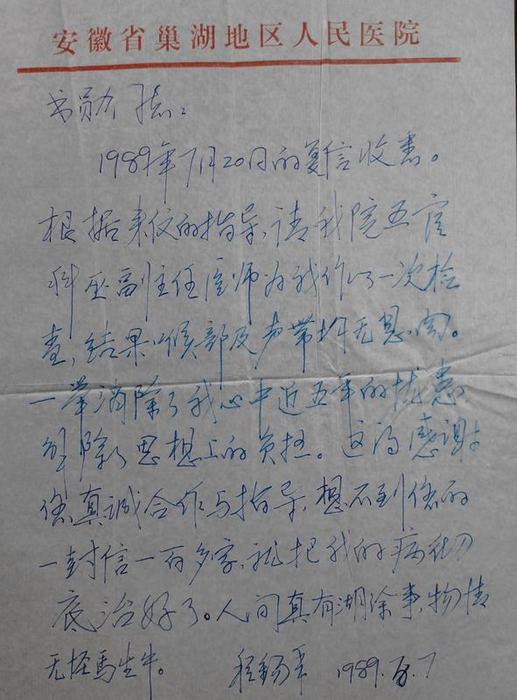 安徽省巢湖地区人民医院
书勋 :
1989年7月20日的复信收悉。
根据来信的指导,请我院五官
科 副主任医师为我作了一次检
查,结果喉部及声带均无异常。
一举消除了我心中近五年的忧虑,
解除了思想上的负担。这得感谢
您真诚合作与指导,想不到您的
一封信一百多字,就把我的病彻
底治好了。人间真有 事,物情
无 马生牛。 1989. 7